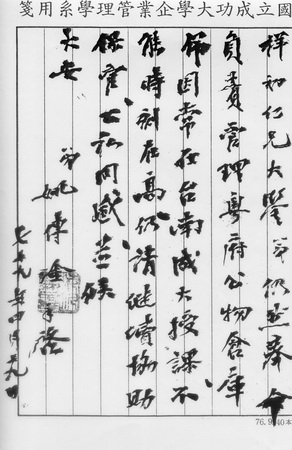 國立成功大學企業管理學系用箋
祥初仁兄大鑒 弟仍奉命
負責管理粵府公物倉庫
因常在台南成大授課不
能時刻在高仍請繼續協助
保管公私同感 並候
大安
弟 姚傳淦 手啓
七十九年十月十九日
76. 9. 40本